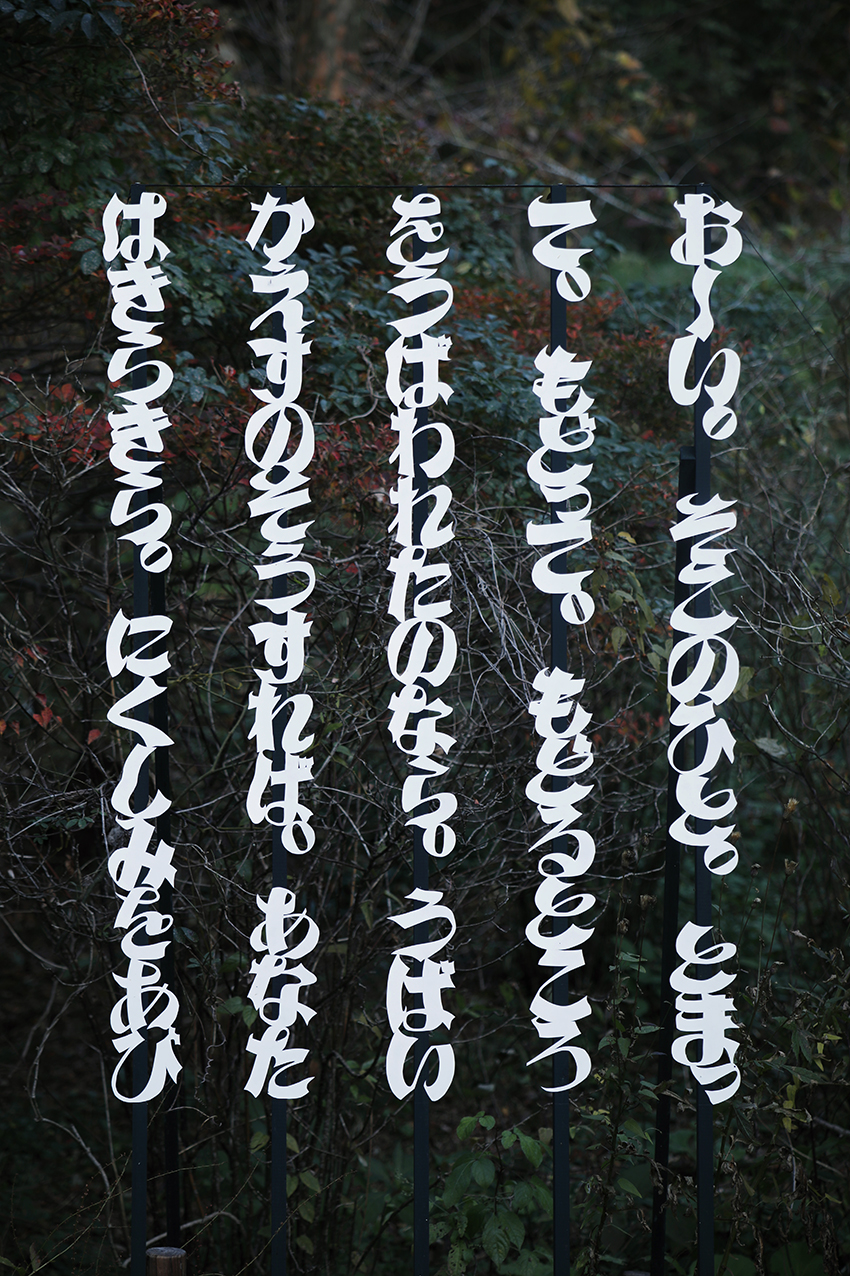 お〜い。　そこのひと。　とまっ
て。　もどって。　もどるところ
をうばわれたのなら。　うばい
かえすのそうすれば。　あなた
はきらきら。　にくしみをあび